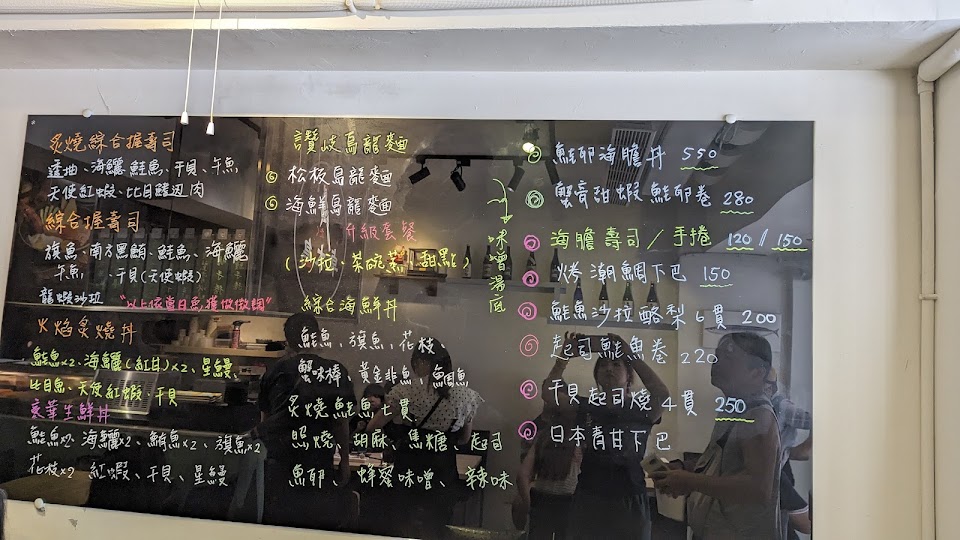 炙燒綜合握壽司
透抽、海鱺、鮭魚、干貝、午魚
天使紅蝦、比目鰭边肉
綜合握壽司
旗魚、南方黑鮪、鮭魚、海鱺
午魚、干貝(天使蝦)
龍蝦沙拉 "以上依當日魚獲做微調"
火焰炙燒丼
鮭魚x2、海鱺(紅甘)x2、星鰻、
比目魚、天使紅蝦、干貝
豪華生鮮丼
鮭魚x2、海鱺x2、鮪魚x2、旗魚x2
花枝x2、紅蝦、干貝、星鰻
讚岐烏龍麵
松板烏龍麵
海鮮烏龍麵
味噌湯底
升級套餐
(沙拉、茶碗蒸、甜點)
綜合海鮮丼
鮭魚、旗魚、花枝、
蟹味棒、黃金非魚、鯛魚
炙燒鮭魚七貫
照燒、胡麻、焦糖、起司
魚卵、蜂蜜味噌、辣味
鮭卵海膽丼 550
蟹膏甜蝦鮭卵卷 280
海膽壽司/手捲 120//150
烤潮鯛下巴 150
鮭魚沙拉酪梨6貫 200
起司鮭魚卷 220
干貝起司燒4貫 250
日本青甘下巴